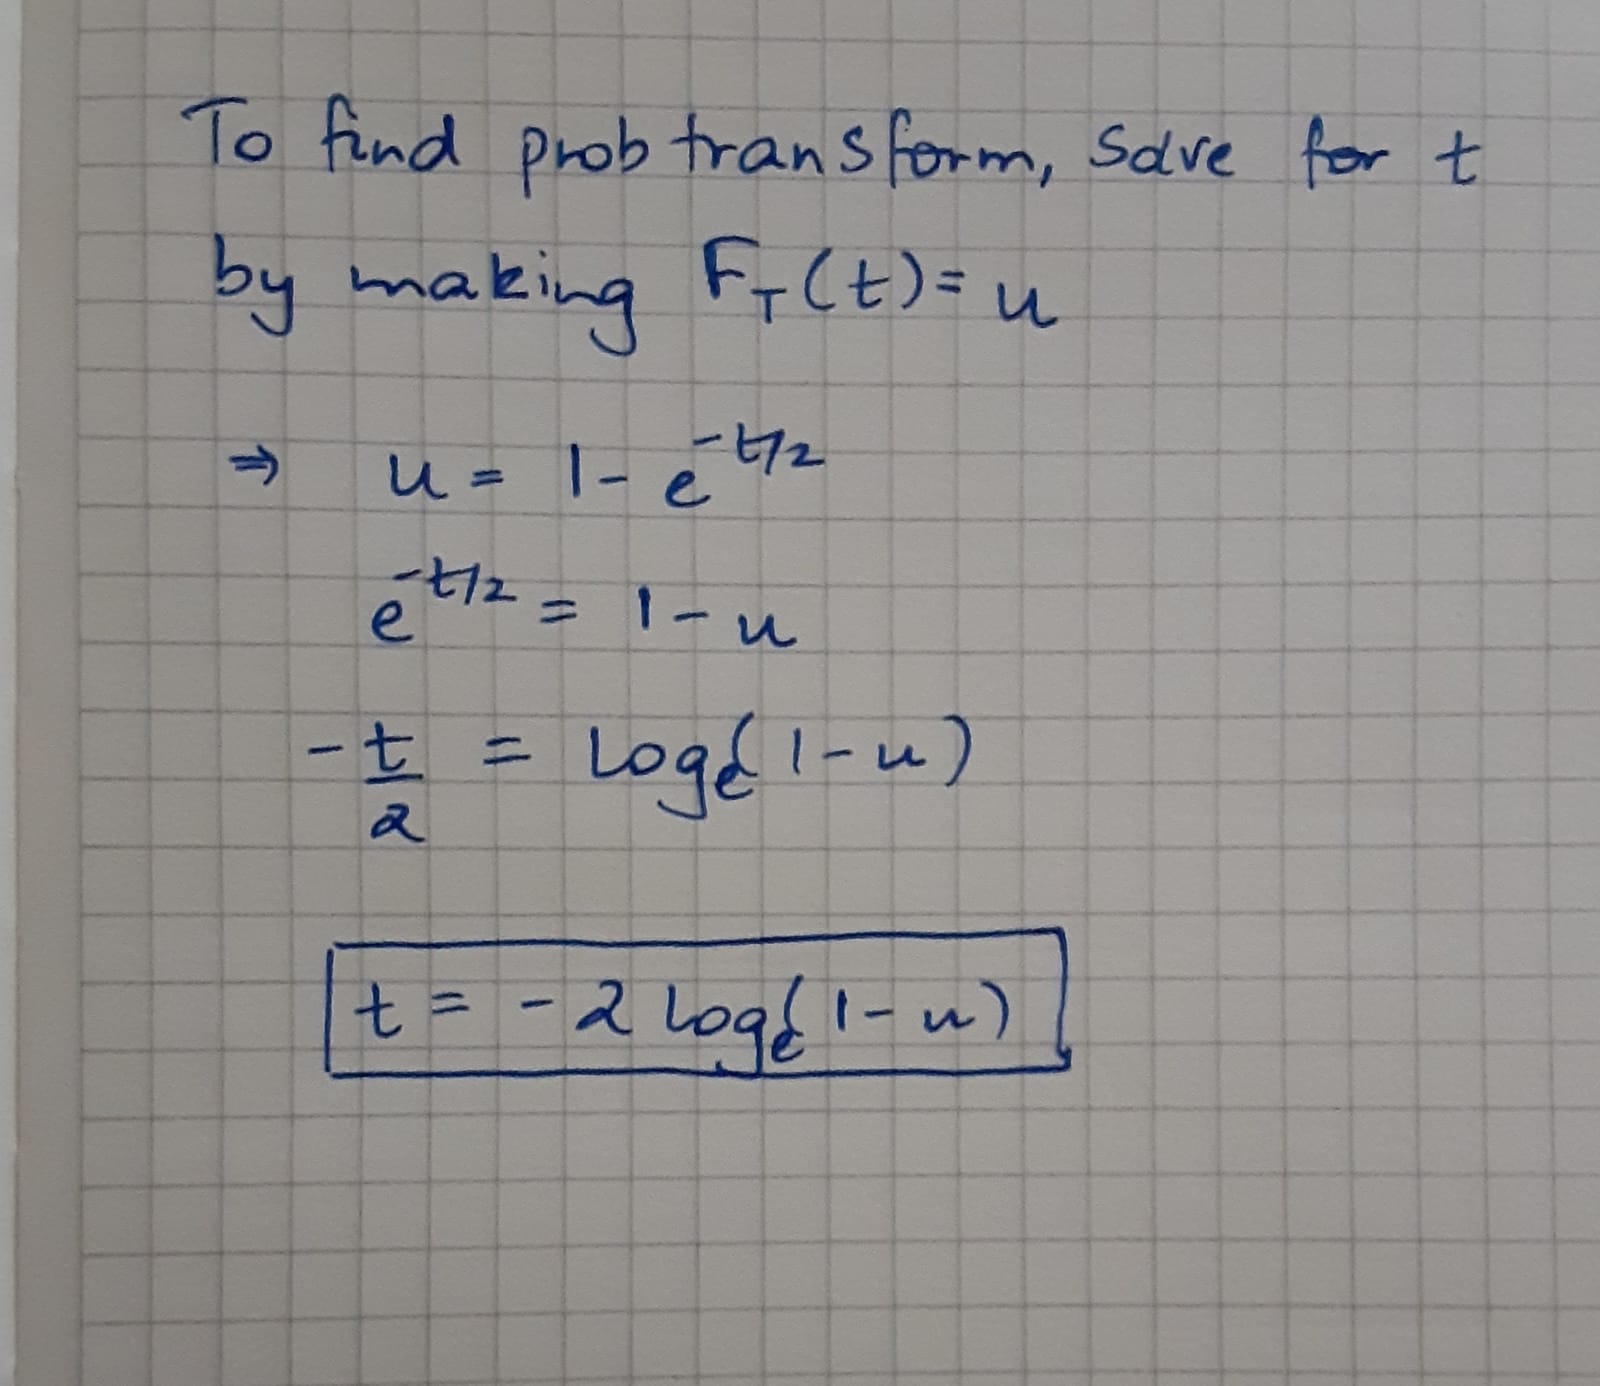 To find prob transform, solve for t
by making F_T(t) = u
⇒ u = 1 - e^{-t/2}
e^{-t/2} = 1 - u
-t/2 = Log_e(1 - u)
t = -2 Log_e(1 - u)